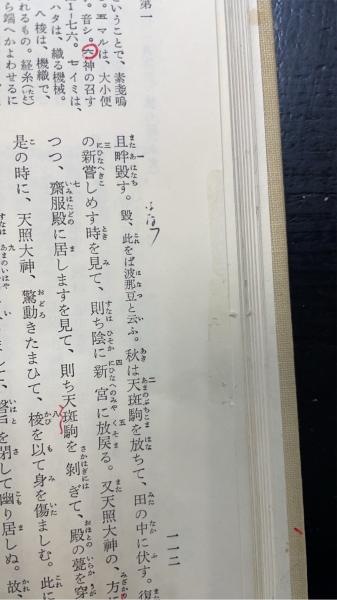 第一
ということで、素戔嗚
五マルは、大小便
音シ。六神の召す
一七六。七イミは、
ハタは、織る機械。
八梭は、機織で、
れるもの。経糸(たて)
ら端へかよわせるに
一一二
且畔毀す。毀、此をば波那豆と云ふ。秋は天斑駒を放ちて、田の中に伏す。復
の新嘗しめす時を見て、則ち陰に新宮に放𡱁る。又天照大神の、方に
つつ、齋服殿に居しますを見て、則ち天斑駒を剝ぎて、殿の甍を穿
是の時に、天照大神、驚動きたまひて、梭を以て身を傷ましむ。此に
磐戸を閉して幽り居しぬ。故、